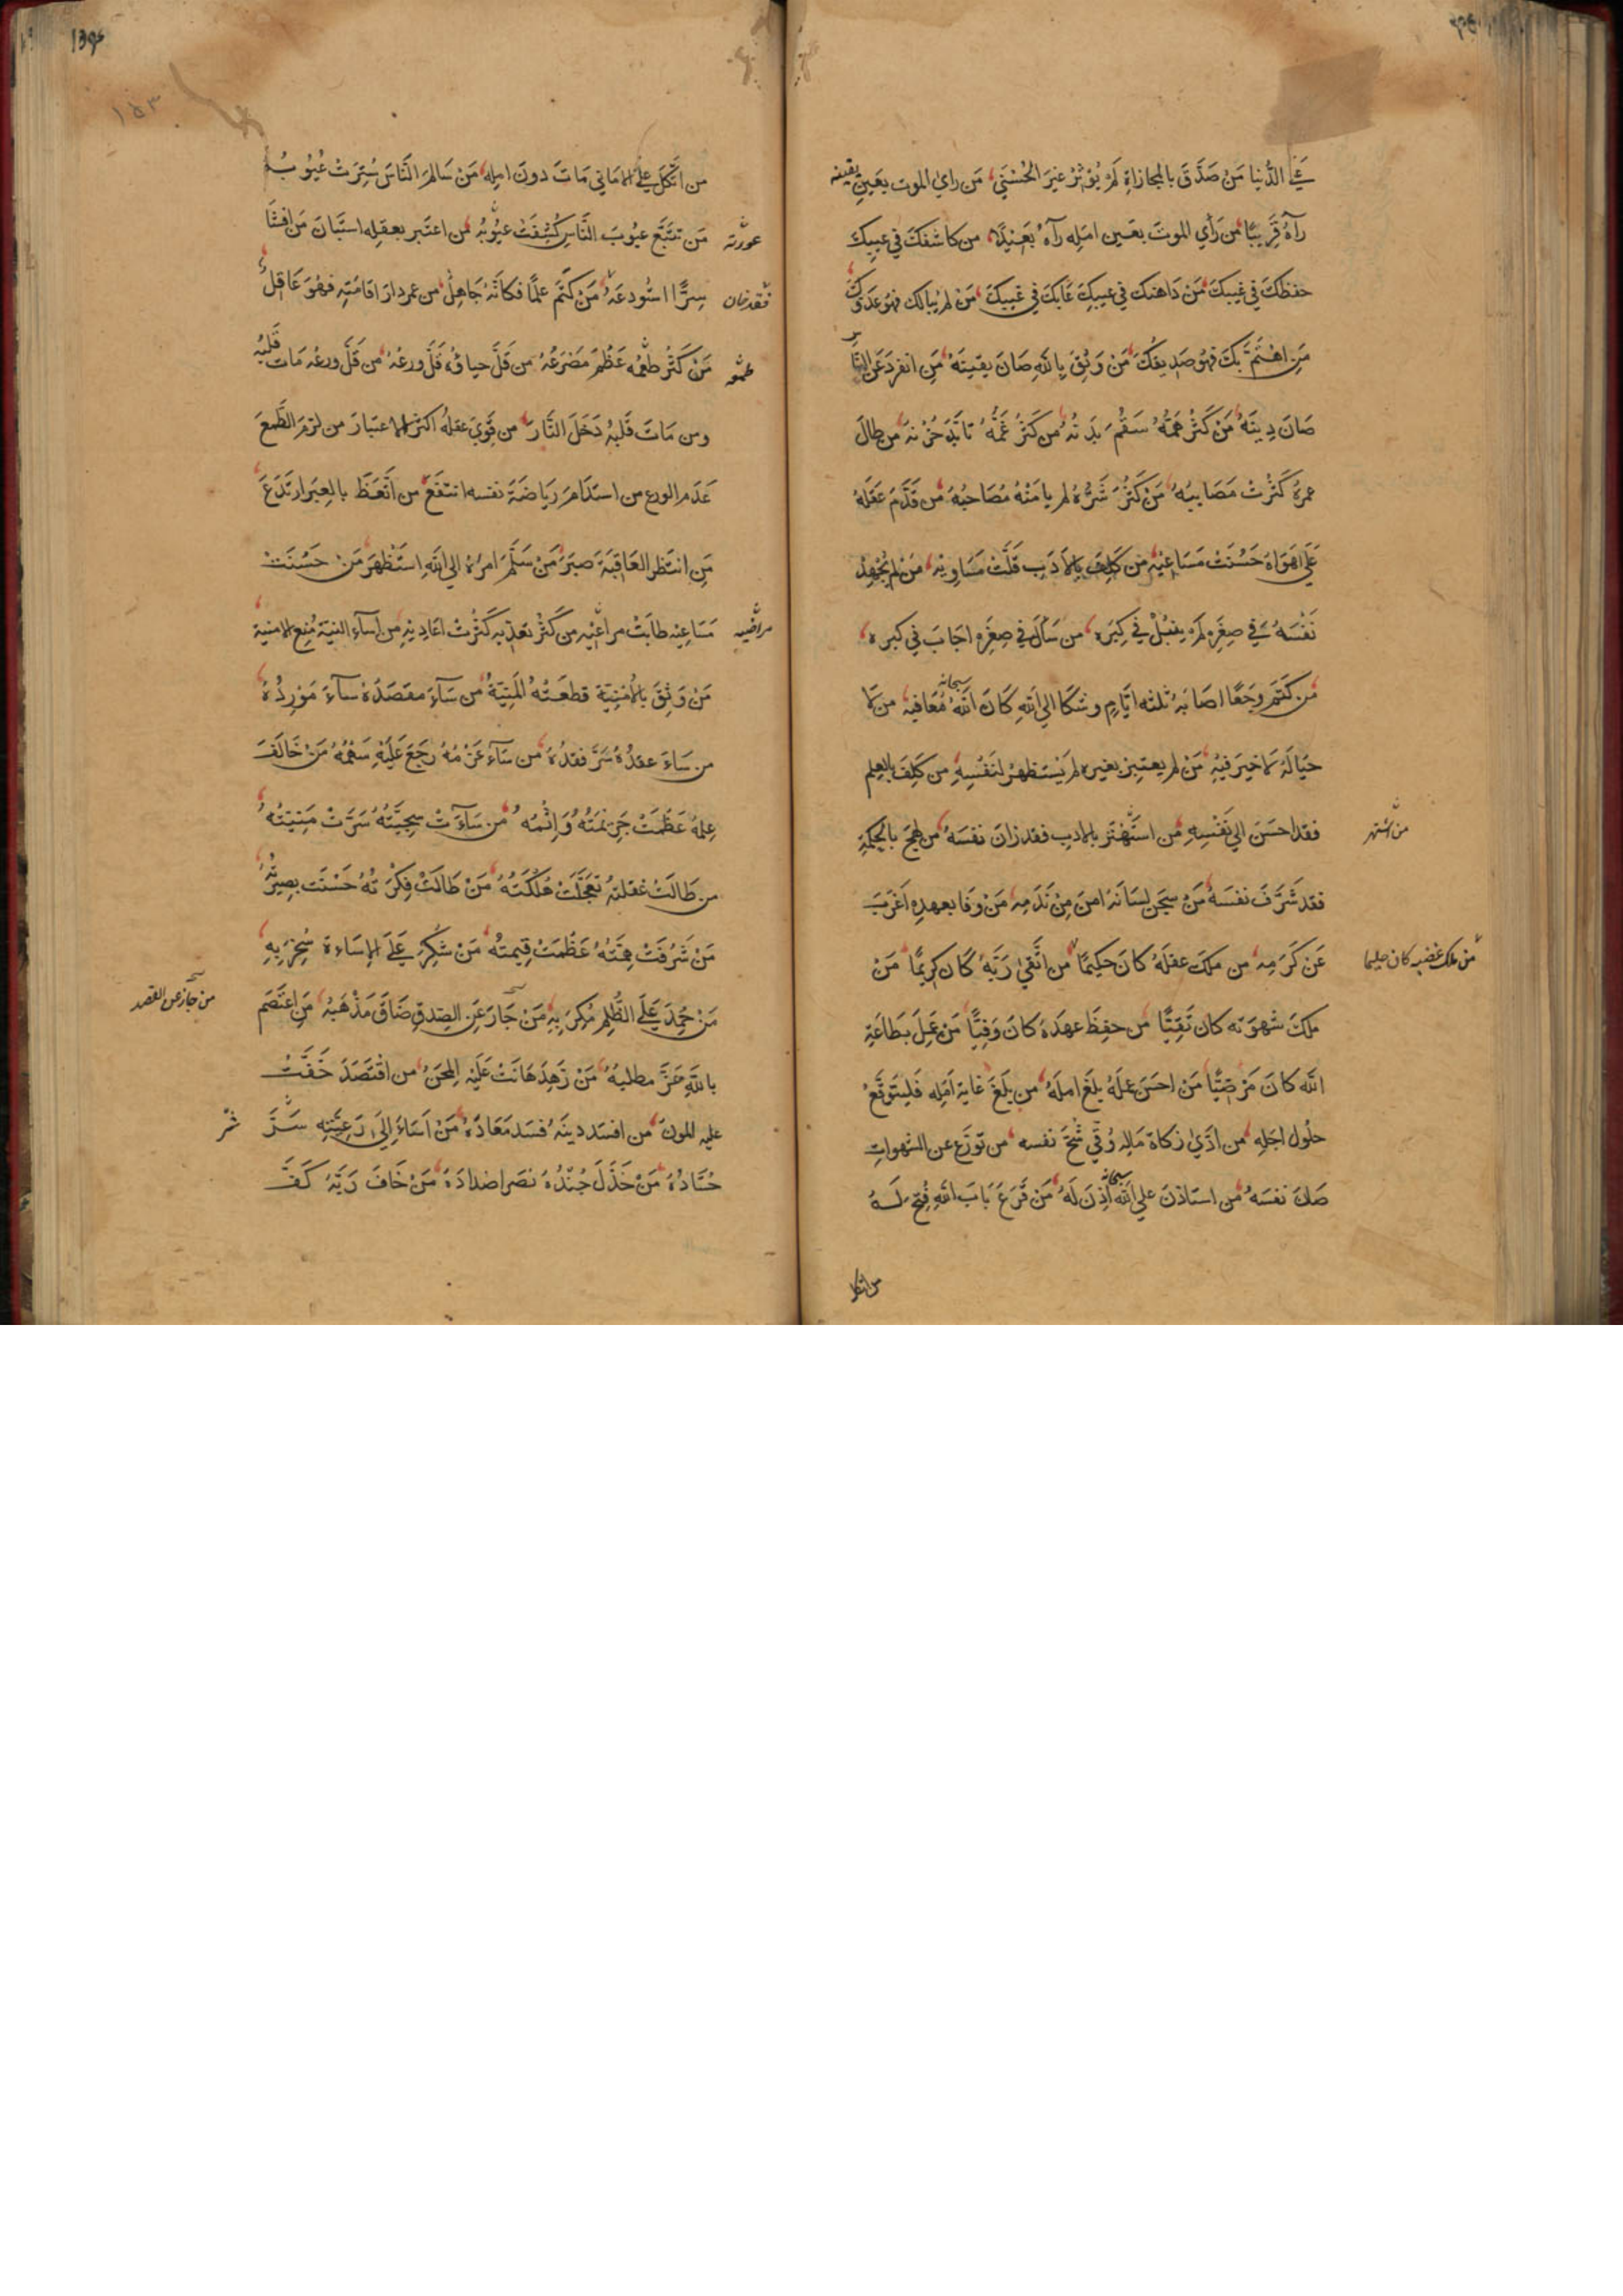 في الدُّنيا مَنْ صَدَّقَ بالمجازاةِ لَمْ يُؤْثِرْ غيرَ الحُسْنَي مَن رايَ الموت بعَينِ يقينه
رآهُ قَرِيبًا من رَأي الموتَ بعَين امَلِه رآهُ بَعَيْدًا من كاشفكَ في عيبِكَ
حفظكَ في غَيبكَ مَنْ دَاهنكَ في عيبِكَ عَابَكَ في غَيبِكَ مَنْ لم يُبالك فهو عَدوّكَ
مَنِ اهْتَمَّ بكَ فهو صَدِيقكَ مَنْ وَثِقَ بِاللهِ صَانَ يقينَهُ مَنِ انفردَ عَن النَّاس
صَانَ دِينَهُ مَنْ كَثُرَ هَمُّهُ سَقُمَ بَدَنُهُ من كَثُرَ غَمُّهُ تابَّدَ حُزنهُ من طالَ
عمرهُ كَثُرتْ مَصَايبُهُ مَنْ كَثُرَ شَرُّهُ لم يامَنْهُ مُصَاحبُهُ من قَدَّمَ عَقلَهُ
عَلَي اهَوَاهُ حَسُنَتْ مَسَاعيْهِ من كَلِفَ بالأدَبِ قَلَّتْ مَسَاوِيْهِ مَنْ لم يُجْهِدْ
نَفْسَهُ في صِغَرِه لَمْ ينبُلْ في كِبَرِه من سَأَلَ في صِغَرِه اجَابَ في كبره
من كتَمَ وجَعًا اصَابَهُ ثلثه ايَّامٍ وشكا الي الله سبحانه كَانَ اللهُ مُعَافيهِ من لا
حَيَا لَهُ لا خيرَ فيْهِ مَنْ لم يعتبِرْ بغيره لم يَستظهرْ لنَفْسِهِ من كَلِفَ بالعِلم
فقد احسَنَ الي نَفْسِهِ من استُهْتَرَ بالادبِ فقد زانَ نفسَهُ من لهجَ بالحِكمةِ
من اشتهر
فقد شَرَّفَ نفسَهُ مَنْ سَجَن لِسَانَهُ امنَ مِنْ نَدَمِه مَنْ وَفا بعهدِه اَعْرَبَ
عَن كَرَمِه من ملكَ عقلَهُ كانَ حكيمًا من اتَّقىٰ رَبَّهُ كَانَ كريمًا مَنْ
من ملك غضبه كان حليما
ملكَ شهوَته كان تَقِيًّا من حفِظَ عهدَهُ كانَ وَفِيًّا مَنْ عَمِلَ بطَاعَةِ
الله كانَ مَرْضِيًّا مَنْ احسَنَ عملَهُ بلَغَ املَهُ من بلَغَ غايةَ اَمَلِه فَليَتوَقَّعْ
حلُول اجَلهِ من ادَّي زكاةَ مَاله وُقي شُحَّ نفسه من تورَّع عن الشهواتِ
صَانَ نفسَهُ من استاذنَ علي الله سبحانه اُذِنَ لَهُ مَنْ قَرَعَ بَابَ اللهِ فُتِحَ لَهُ
من اتكل
من اتَّكلَ علي الامَاني مَاتَ دونَ املِه مَنْ سَالَم النَّاسَ سُتِرَتْ عُيُوبُه
مَن تتبَّع عيُوبَ النَّاس كُشِفَتْ عيُوبُه من اعتبر بعقلِه استَبانَ مَن افشَا
عورته
سِرًّا استُودعَهُ مَنْ كتَم علمًا فكانَّهُ جَاهِلٌ من عمر دارَ اقامَتِه فهُوَ عَاقلٌ
فقد خان
مَنْ كَثُرَ طعْمُه عَظُمَ مَصْرَعُهُ من قَلَّ حياؤُه قَلَّ ورعُهُ من قَلَّ ورعُه مَات قلبُهُ
طمعه
ومن مَاتَ قلبهُ دَخَلَ النَّارَ من قَوِيَ عقلُه اكثرَ الاعتبارَ من لزمَ الطَّمعَ
عَدَم الورع من استدَامَ رِيَاضَةَ نفسه انتفَعَ من اتَّعَظَ بالعِبَر ارتَدَعَ
مَنِ انتَظر العَاقِبَةَ صبَرَ مَنْ سَلَّمَ امرَهُ الي اللهِ استَظْهرَ مَنْ حَسُنَتْ
مَسَاعِيْه طابَتْ مراعيْه من كَثُر تعدّيه كَثُرتْ اعَاديْه من اسآء النيّة مُنِعَ الامنية
مراضيه
مَنْ وَثِقَ بالأُمْنِيَّة قطعَتْهُ المَنِيَّةُ من سَآءَ مقصَدُهُ سآءَ مَوْرِدُهُ
من سَاءَ عقدُهُ سَرَّ فقدُهُ من سَآءَ عَزْمُهُ رجَعَ عَلَيْهِ سَهْمُهُ مَنْ خَالَفَ
عِلمَهُ عَظُمَتْ جَرِيْمَتُهُ وَاِثْمُهُ من سَآءَتْ سجِيَّتُهُ سَرَّتْ مَنِيَّتُهُ
من طَالَتْ غفلتهُ تعجَّلَتْ هُلْكَتُهُ مَنْ طَالَتْ فِكرَتُهُ حَسُنَت بصِيرتُهُ
مَنْ شَرُفَتْ هِمَّتُهُ عَظُمَتْ قِيمتُه مَنْ شُكِرَ عَلَى الإسَاءةِ سُخِرَ بِهِ
مَنْ حُمِدَ عَلَى الظُّلمِ مُكِرَ بِهِ مَنْ جَارَ عَنِ الصِّدقِ ضَاقَ مَذْهَبُهُ مَن اعتَصَم
من جاز عن القصد
باللهِ عَزَّ مطلبُهُ مَنْ زَهِدَ هَانَتْ عَلَيْهِ المِحَنُ من اقتَصَدَ خَفَّتْ
عليه المؤن من افسَد دينَهُ فسَد مَعَادُهُ مَنْ اسَاءَ اِلَى رَعِيَّتِه سَرَّ
حُسَّادهُ مَنْ خَذَلَ جُنْدَهُ نصَر اضدادَهُ مَنْ خَافَ رَبَّهُ كَفَّ